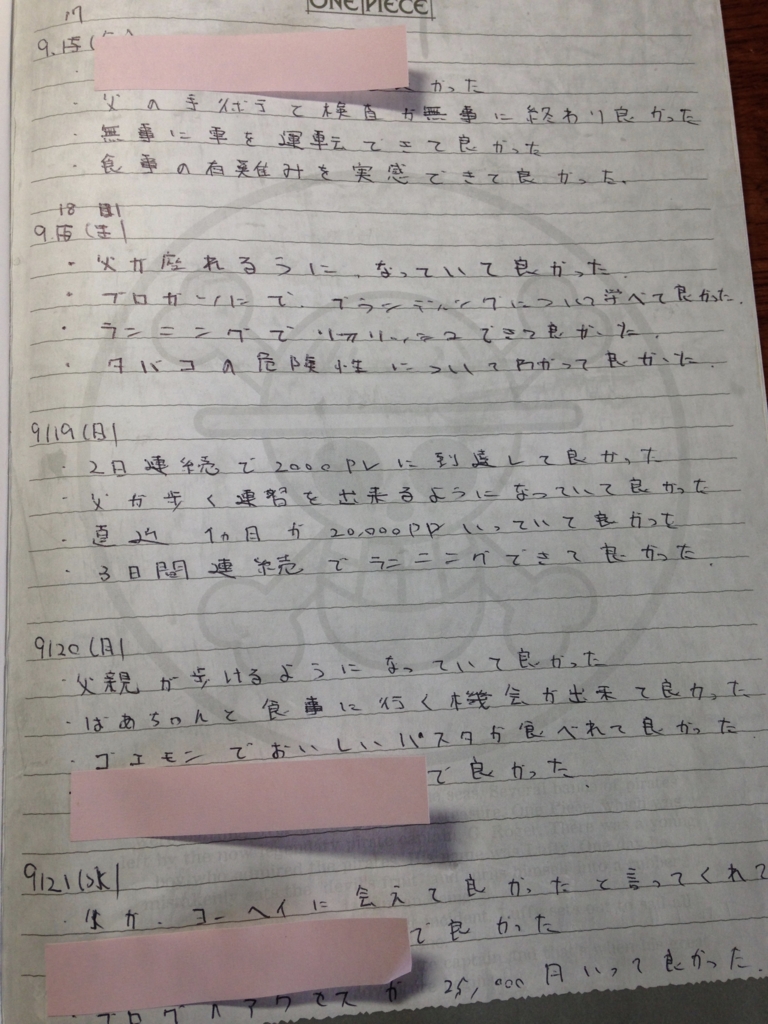 ONE PIECE
17
9.15(
かった
・父の手術って検査が無事に終わり良かった
・無事に車を運転できて良かった
・食事の有難みを実感できて良かった.
18 日
9.15(土)
・父が座れるうに、なっていて良かった
・ブロガールにて、ブランディングについて学べて良かった.
・ランニングでリフレッシュできて良かった.
・タバコの危険性についてわかって良かった.
9/19(日)
・2日連続で2000PVに到達して良かった
・父が歩く連習を出来るようになっていて良かった
・直近1カ月が20,000PVいっていて良かった
・3日間連続でランニングできて良かった.
9/20(月)
・父親が歩けるようになっていて良かった
・ばあちゃんと食事に行く機会が出来て良かった
・ゴエモンでおいしいパスタが食べれて良かった
で良かった
9/21(水)
・が、ヨーヘイに会えて良かったと言ってくれて
で良かった
・ブログのアクセスが25,000月いって良かった.